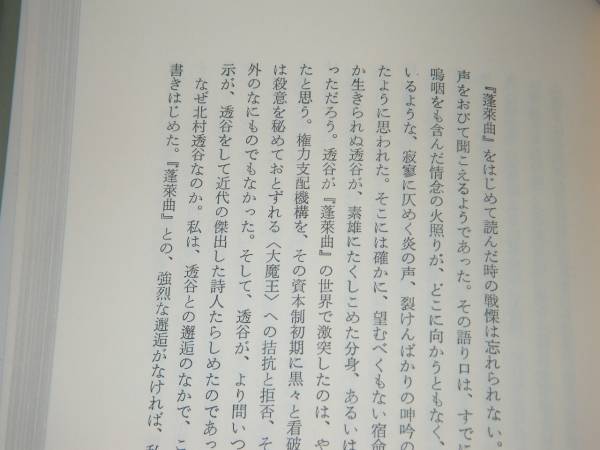 『蓬萊曲』をはじめて読んだ時の戦慄は忘れられない。
声をおびて聞こえるようであった。その語り口は、すでに
嗚咽をも含んだ情念の火照りが、どこに向かうともなく、
いるような、寂寥に仄めく炎の声、裂けんばかりの呻吟の
たように思われた。そこには確かに、望むべくもない宿命
か生きられぬ透谷が、素雄にたくしこめた分身、あるいは
っただろう。透谷が『蓬萊曲』の世界で激突したのは、や
たと思う。権力支配機構を、その資本制初期に黒々と看破
は殺意を秘めておとずれる〈大魔王〉への拮抗と拒否、そ
外のなにものでもなかった。そして、透谷が、より問いつ
示が、透谷をして近代の傑出した詩人たらしめたのであっ
なぜ北村透谷なのか。私は、透谷との邂逅のなかで、こ
書きはじめた。『蓬萊曲』との、強烈な邂逅がなければ、私